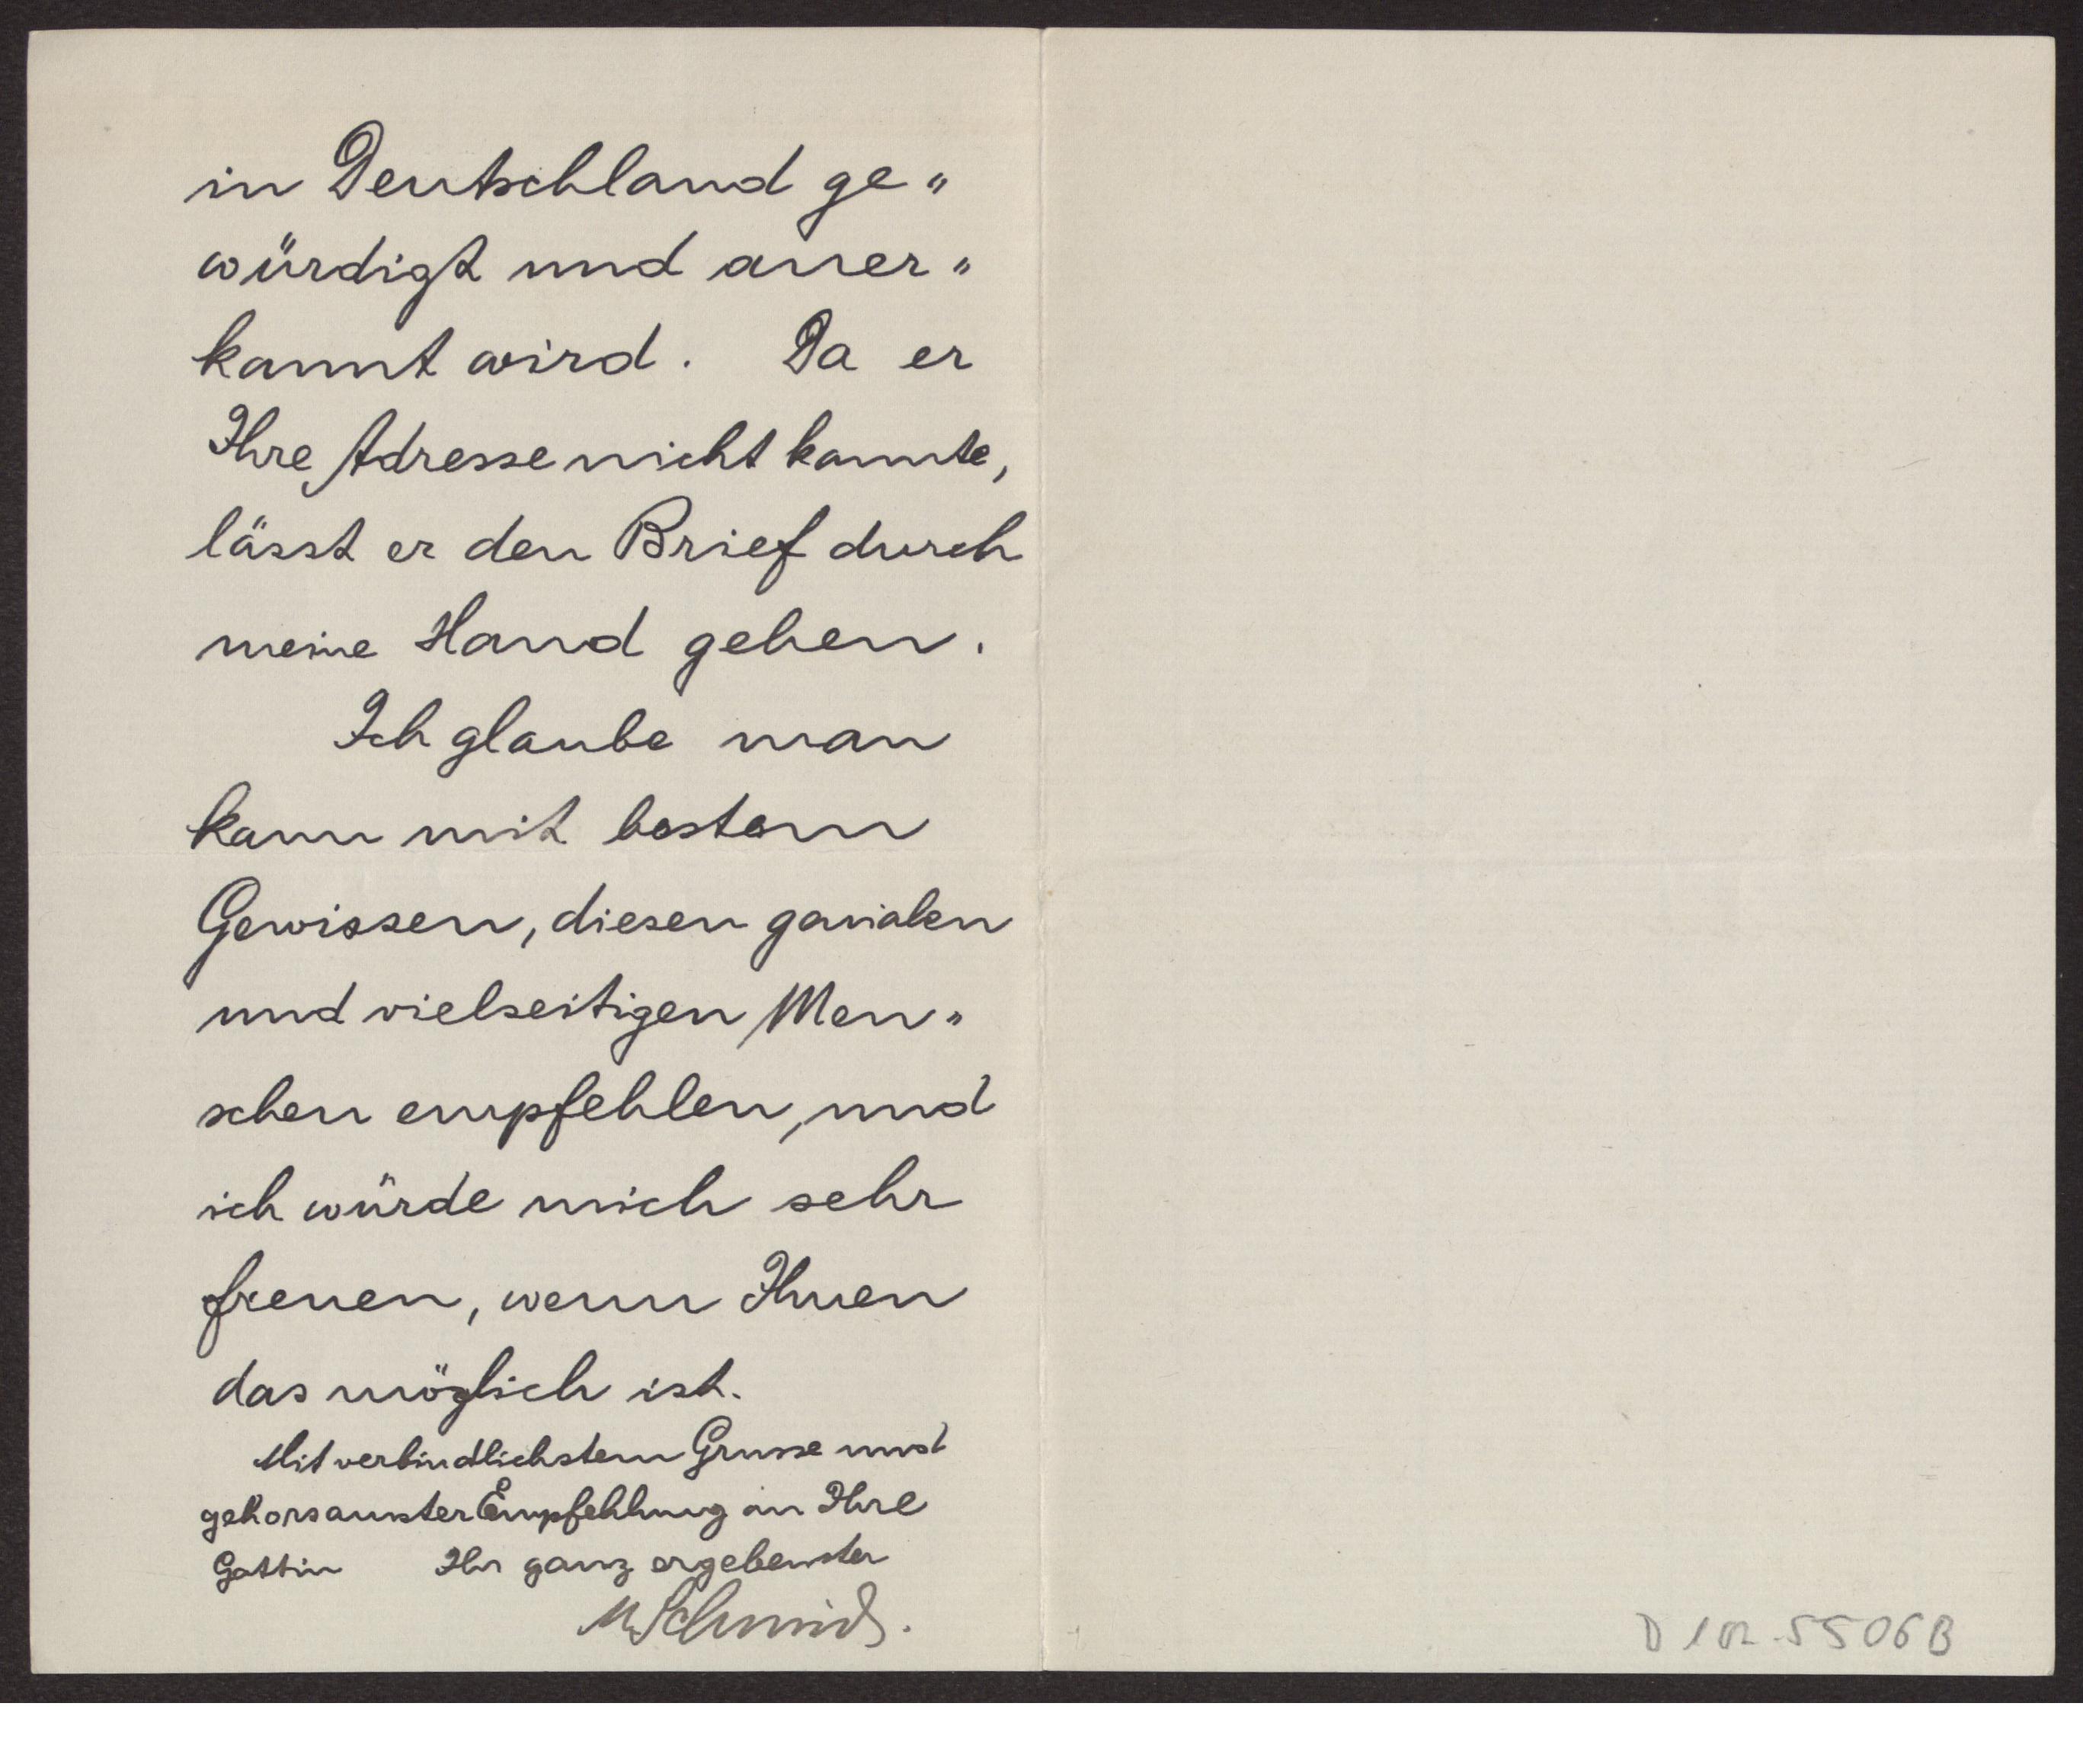 in Deutschland ge"
würdigt und aner"
kannt wird. Da er
Ihre Adresse nicht kannte,
lässt er den Brief durch
meine Hand gehen.
Ich glaube man
kann mit bestem
Gewissen, diesen genialen
und vielseitigen Men"
schen empfehlen, und
ich würde mich sehr
freuen, wenn Ihnen
das möglich ist.
Mit verbindlichstem Grusse und
gehorsamster Empfehlung an Ihre
Gattin Ihr ganz ergebenster
M. Schmid.
5506B